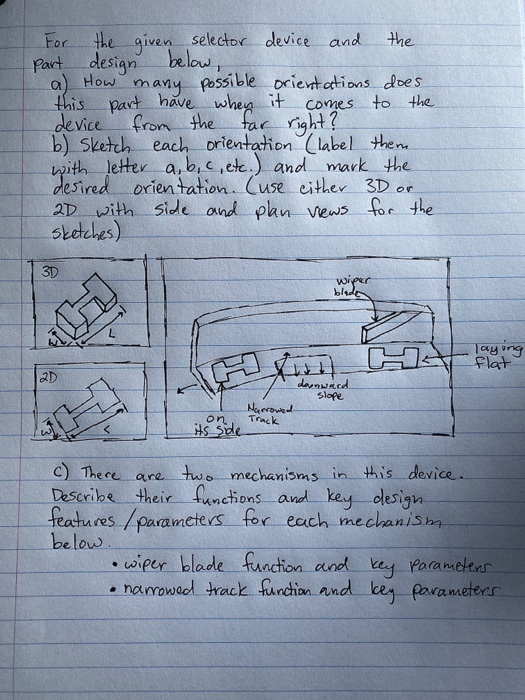 For the given selector device and the
part design below,
a) How many possible orientations does
this part have when it comes to the
device from the far right?
b) Sketch each orientation (label them
with letter a, b, c, etc.) and mark the
desired orientation. (use either 3D or
2D with side and plan views for the
sketches)
3D
W
L
2D
W
L
wiper
blade
laying
flat
downward
slope
Narrowed
Track
on
its side
c) There are two mechanisms in this device.
Describe their functions and key design
features / parameters for each mechanism
below.
• wiper blade function and key parameters
• narrowed track function and key parameters